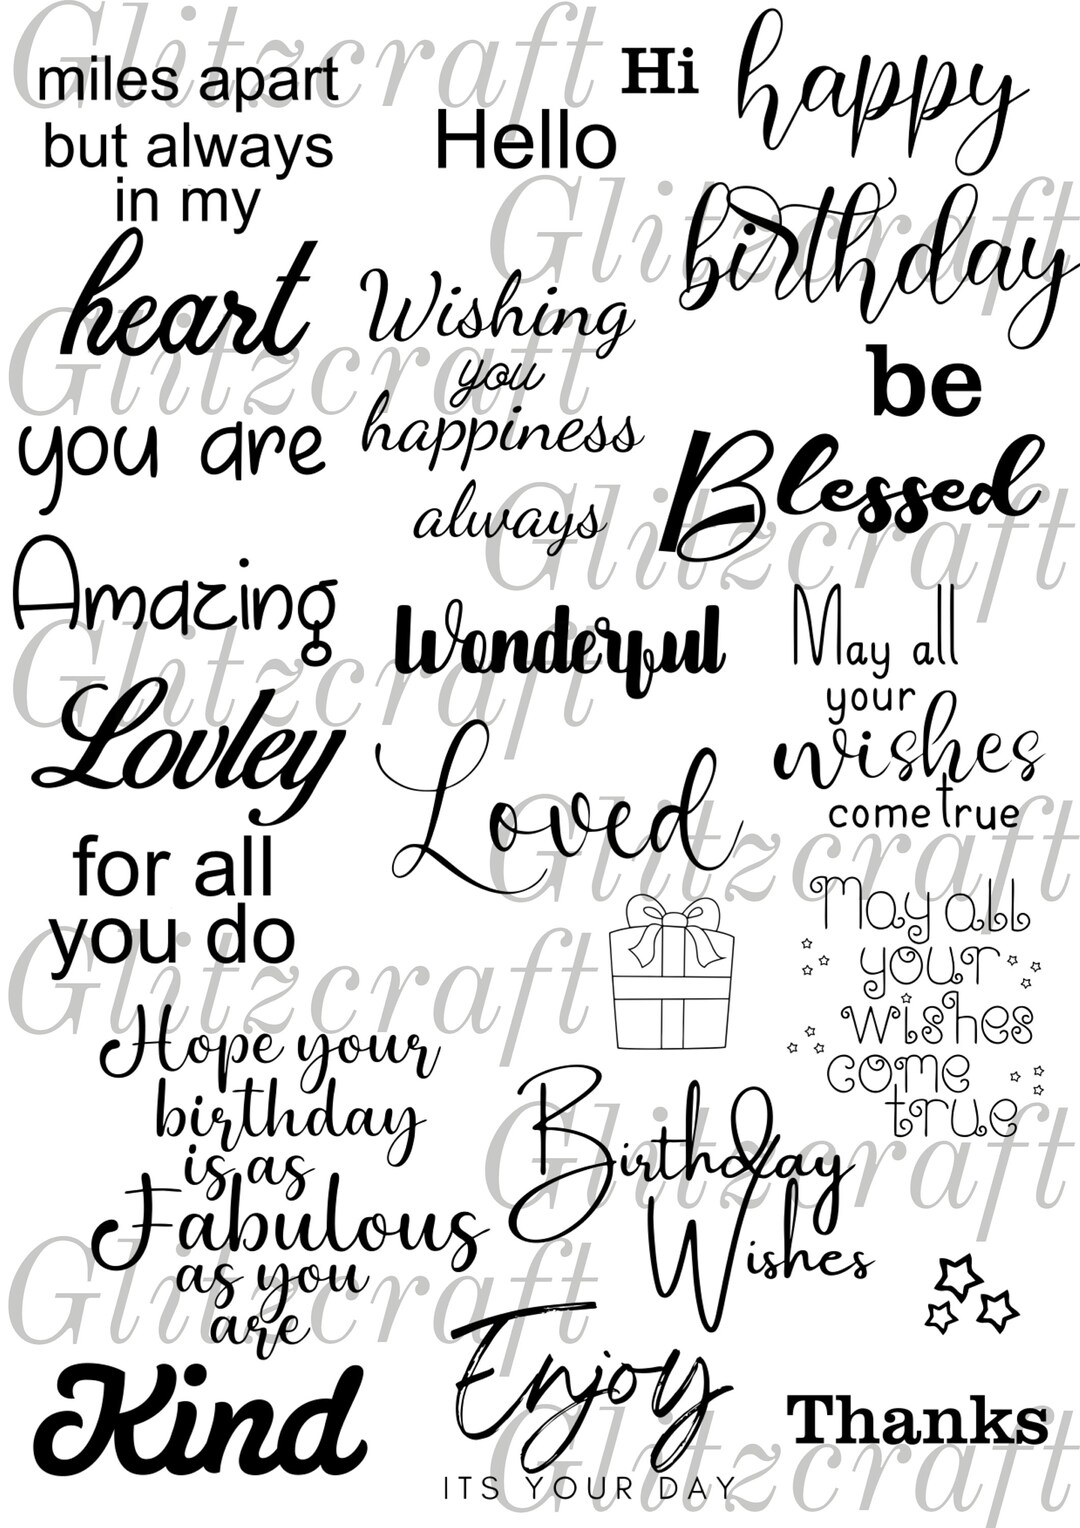 miles apart
but always
in my
heart
Hello
Hi
happy
birthday
Wishing
you
happiness
always
be
Blessed
you are
Amazing
Lovley
Wonderful
Loved
May all
your
wishes
come true
for all
you do
May all
your
wishes
come
true
Hope your
birthday
is as
Fabulous
as you
are
Birthday
Wishes
Kind
Enjoy
ITS YOUR DAY
Thanks
Glitzcraft
Glitzcraft
Glitzcraft
Glitzcraft
Glitzcraft
Glitzcraft
Glitzcraft
Glitzcraft
Glitzcraft
Glitzcraft